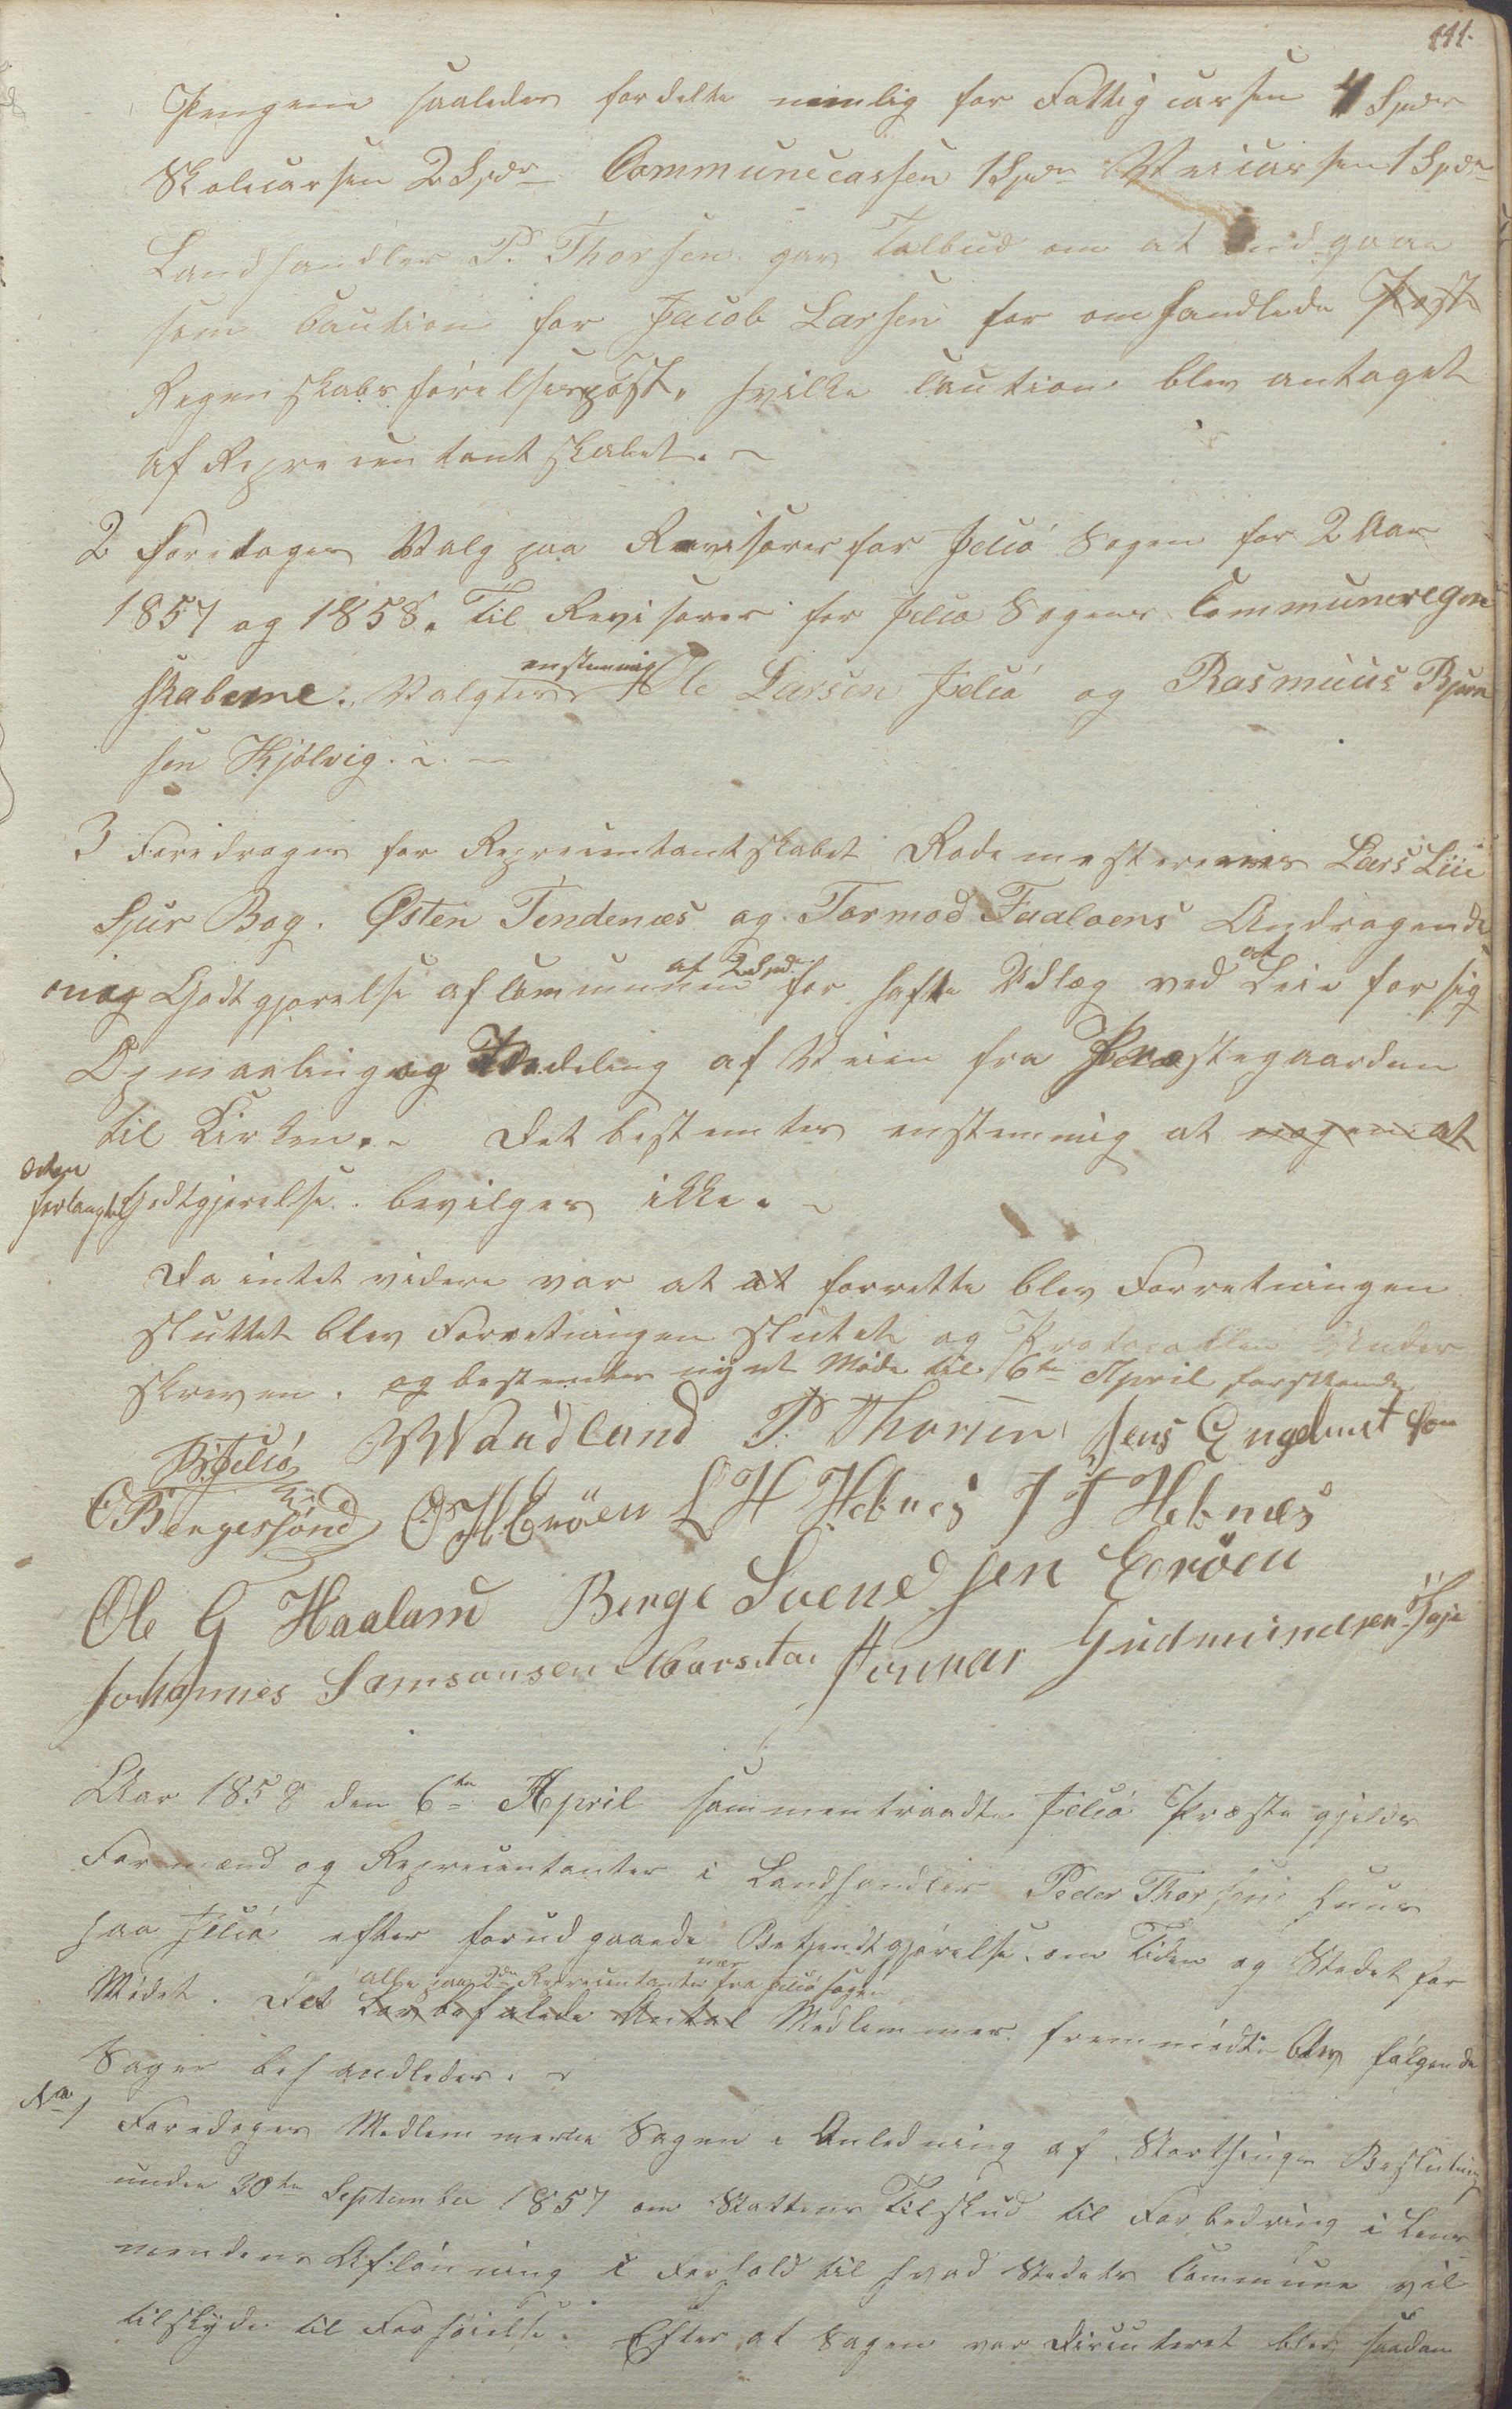 111.
Pengene saaledes fordelte nemlig for Fattigcassen 4 Spdr
Skolecassen 2 Spdr Communecassen 1 Spdr Veicassen 1 Spdr
Landhandler P. Thorsen gav Tilbud om at indgaae
som Caution for Jacob Larsen for omhandlede Post
Regenskabsførelsespost, hvilke Caution blev antaget
af Representantskabet. ~
2 Foretoges Valg paa Revisorer for Jelsø Sogen for 2 Aar
1857 og 1858. Til Revisorer for Jelsø Sogens Communeregen
skaberne. Valgtes enstemmig Ole Larsen Jelsø og Rasmuus Bjørn
sen Hjølvig. ~
3 Foredroges for Representantskabet Rodemesterernes Lars Liie
Sjur Bog. Østen Tendenæs og Tormod Faaloens Andragende
om Godtgjørelse af Communen af 2 Spd. for hafte Udlæg ved at Leie for sig
Opmaaling og Inddeling af Veien fra Præstegaarden
til Kirken. ~ Det bestemtes enstemmig at nogen at
den
forlangte Godtgjørelse. bevilges ikke. ~
Da intet videre var at at forrette blev Forretningen
sluttet blev Forretningen sluttet og Protocollen Under
skreven. og bestemtes nyet Møde til 6te April førstkende
B Jelsø W Vaudland P. Thorsen Jens Engebret son
O Bergessønd O H Erøen L H Hebnes J J Hebnæs
Ole G Haaland Berge Svend sen Erøen
Johannes Samsonsen Barsta Gudmundsen
Aar 1858 den 6te April sammentraadte Jelsø Præstegjelds
Formænd og Representanter i Landhandler Peder Thorsens Huus
paa Jelsø efter forudgaaede Bekjendtgjørelse om Tiden og Stedet for
Mødet. Det Lov befalede Antal alle paa 2de Representanter nær fra Jelsø Sogen Medlemmer fremmødte blev følgende
Sager behandledes. ~
No 1 Foredoges Medlemmerne Sagen i Anledning af Storthings Beslutning
under 30te September 1857 om Stattens Tilskud til Forbedring i Lens
mendens Aflønning i Forhold til hvad Stedets Commune vil
tilskyde til Forhøielse. Efter at Sagen var Discuteret blev saadan